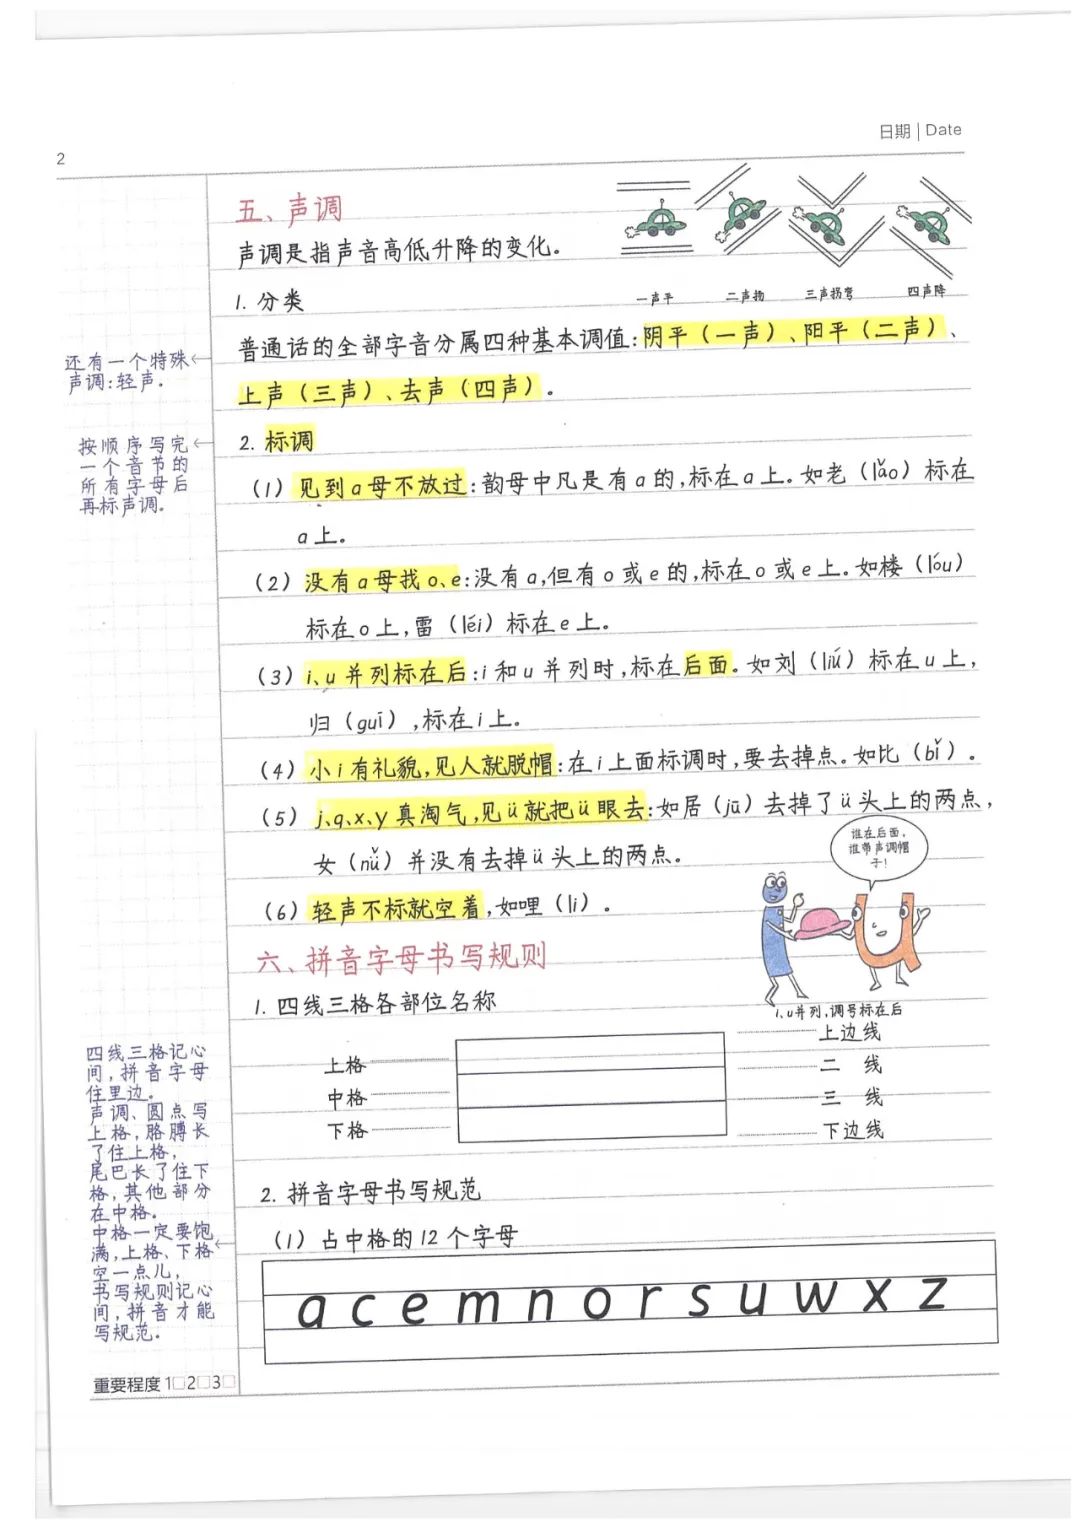 日期 | Date
2
五、声调
声调是指声音高低升降的变化。
一声平
二声扬
三声拐弯
四声降
1. 分类
普通话的全部字音分属四种基本调值:阴平(一声)、阳平(二声)、
上声(三声)、去声(四声)。
还有一个特殊
声调:轻声。
2. 标调
按顺序写完
一个音节的
所有字母后
再标声调。
(1) 见到a母不放过:韵母中凡是有a的,标在a上。如老(lǎo)标在
a上。
(2) 没有a母找o、e:没有a,但有o或e的,标在o或e上。如楼(lóu)
标在o上,雷(léi)标在e上。
(3) i、u并列标在后:i和u并列时,标在后面。如刘(liú)标在u上,
归(guī),标在i上。
(4) 小i有礼貌,见人就脱帽:在i上面标调时,要去掉点。如比(bǐ)。
(5) j、q、x、y真淘气,见ü就把ü眼去:如居(jū)去掉了ü头上的两点,
女(nǚ)并没有去掉ü头上的两点。
(6) 轻声不标就空着,如哩(li)。
谁在后面,
谁带声调帽
子!
i、u并列,调号标在后
六、拼音字母书写规则
1. 四线三格各部位名称
上格
中格
下格
上边线
二 线
三 线
下边线
四线三格记心
间,拼音字母
住里边。
声调、圆点写
上格,胳膊长
了住上格,
尾巴长了住下
格,其他部分
在中格。
中格一定要饱
满,上格、下格
空一点儿,
书写规则记心
间,拼音才能
写规范。
2. 拼音字母书写规范
(1) 占中格的12个字母
a c e m n o r s u w x z
重要程度 1□2□3□